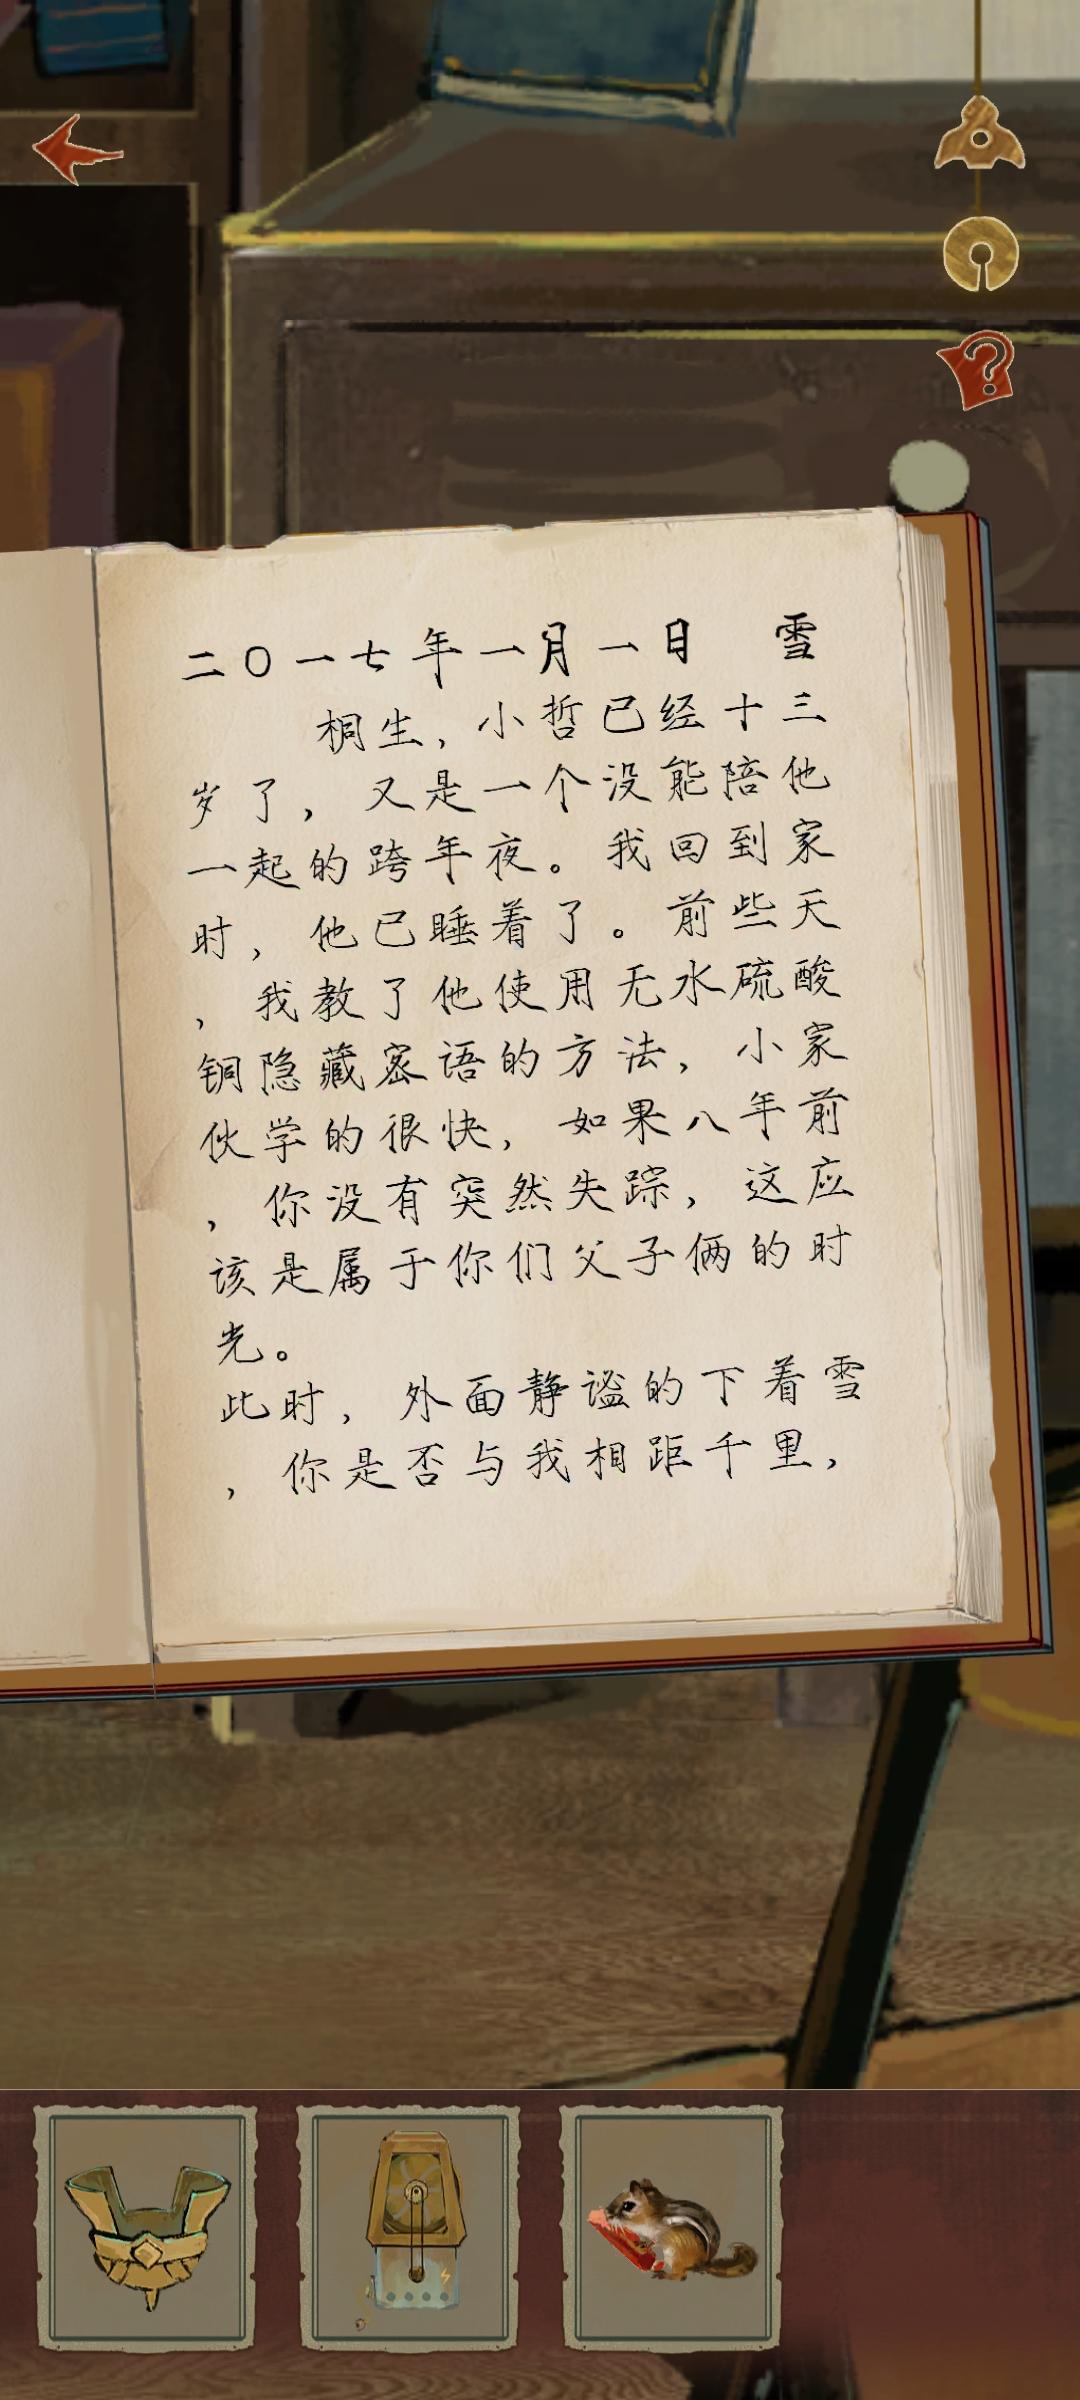 二〇一七年一月一日 雪
桐生，小哲已经十三
岁了，又是一个没能陪他
一起的跨年夜。我回到家
时，他已睡着了。前些天
，我教了他使用无水硫酸
铜隐藏密语的方法，小家
伙学的很快，如果八年前
，你没有突然失踪，这应
该是属于你们父子俩的时
光。
此时，外面静谧的下着雪
，你是否与我相距千里，